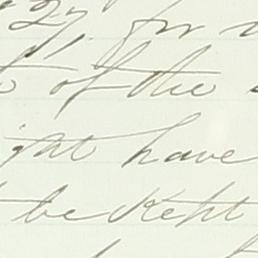 27. for
of the
ight have
be Kept